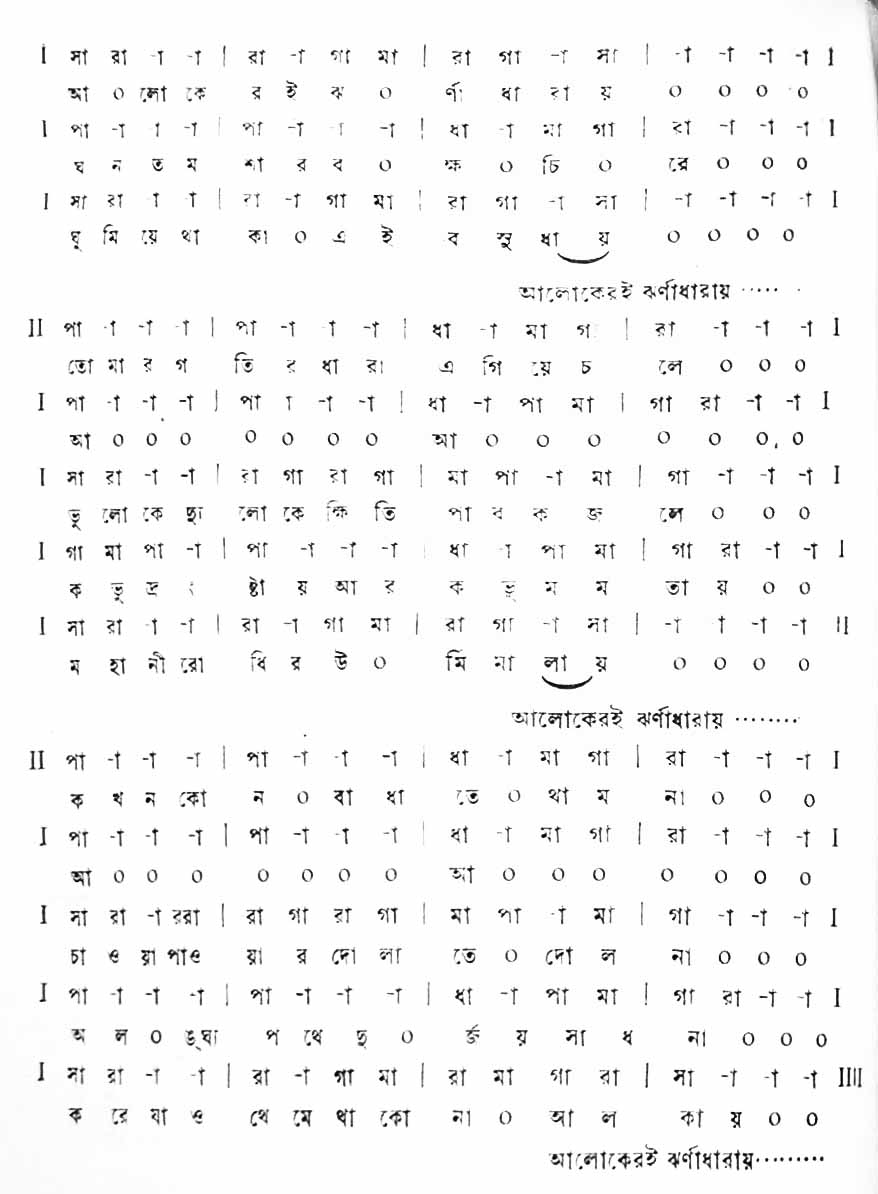 I সা রা -া -া | রা -া গা মা | রা গা -া সা | -া -া -া -া I
আ ০ লো কে র ই ঝ ০ র্ণা ধা রা য় ০ ০ ০ ০
I পা -া -া -া | পা -া -া -া | ধা -া মা গা | রা -া -া -া I
ঘ ন ত ম শা র ব ০ ক্ষ ০ চি ০ রে ০ ০ ০
I সা রা -া -া | রা -া গা মা | রা গা -া সা | -া -া -া -া I
ঘু মি য়ে থা কা ০ এ ই ব সু ধা য় ০ ০ ০ ০
আলোকেরই ঝর্ণাধারায় ······
II পা -া -া -া | পা -া -া -া | ধা -া মা গা | রা -া -া -া I
তো মা র গ তি র ধা রা এ গি য়ে চ লে ০ ০ ০
I পা -া -া -া | পা -া -া -া | ধা -া পা মা | গা রা -া -া I
আ ০ ০ ০ ০ ০ ০ ০ আ ০ ০ ০ ০ ০ ০ ০
I সা রা -া -া | রা গা রা গা | মা পা -া মা | গা -া -া -া I
ভূ লো কে দ্যু লো কে ক্ষি তি পা ব ক জ লে ০ ০ ০
I গা মা পা -া | পা -া -া -া | ধা -া পা মা | গা রা -া -া I
ক ভু দ্র ং ষ্টা য় আ র ক ভু ম ম তা য় ০ ০
I সা রা -া -া | রা -া গা মা | রা গা -া সা | -া -া -া -া II
ম হা নী রো ধি র উ ০ র্মি মা লা য় ০ ০ ০ ০
আলোকেরই ঝর্ণাধারায় ········
II পা -া -া -া | পা -া -া -া | ধা -া মা গা | রা -া -া -া I
ক খ ন কো ন ০ বা ধা তে ০ থা ম না ০ ০ ০
I পা -া -া -া | পা -া -া -া | ধা -া মা গা | রা -া -া -া I
আ ০ ০ ০ ০ ০ ০ ০ আ ০ ০ ০ ০ ০ ০ ০
I সা রা -া ররা | রা গা রা গা | মা পা -া মা | গা -া -া -া I
চা ও য়া পাও য়া র দো লা তে ০ দো ল না ০ ০ ০
I পা -া -া -া | পা -া -া -া | ধা -া পা মা | গা রা -া -া I
অ ল ০ ঙ্ঘ্য প থে দু ০ র্জ য় সা ধ না ০ ০ ০
I সা রা -া -া | রা -া গা মা | রা মা গা রা | সা -া -া -া IIII
ক রে যা ও থে মে থা কো না ০ আ ল কা য় ০ ০
আলোকেরই ঝর্ণাধারায়·········